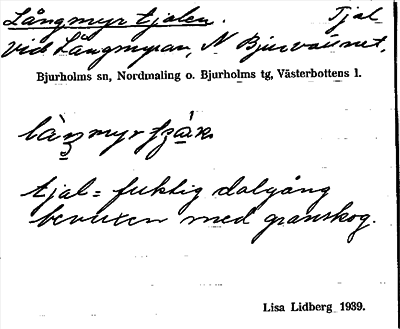 Långmyrtjalen. Tjal
vid Långmyran, N Bjurvattnet,
Bjurholms sn, Nordmaling o. Bjurholms tg, Västerbottens l.
tjal = fuktig dalgång
bevuxen med granskog.
Lisa Lidberg 1939.